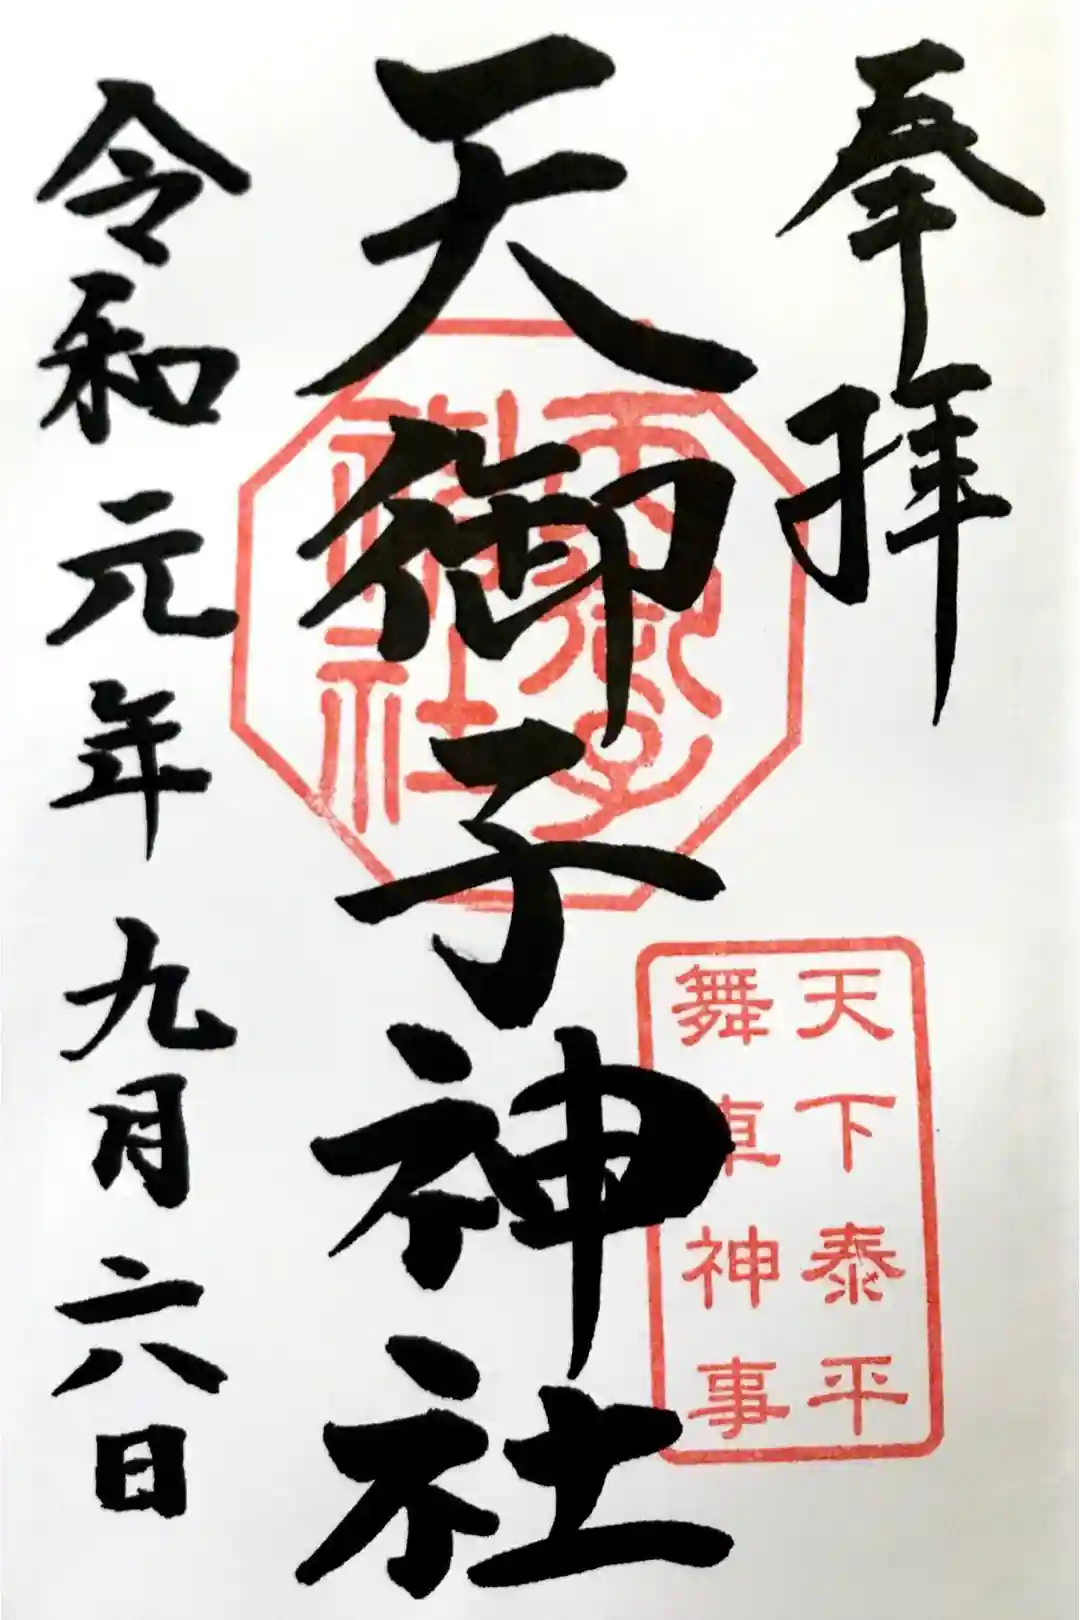 奉拝
天御子神社
令和元年九月六日
天御子
神社
天下泰平
舞車神事